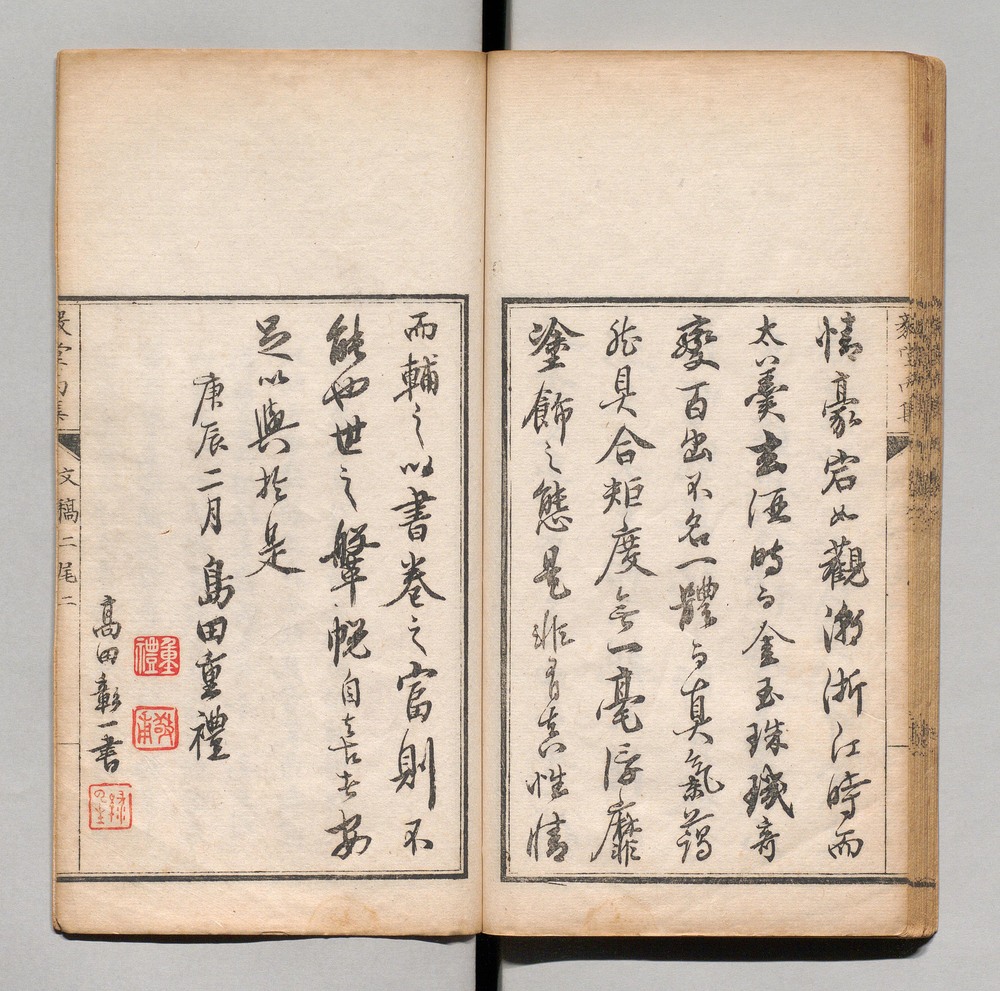 情豪宕如觀潮浙江時而
太羹玄酒時而金玉珠璣奇
變百出不名一體而真氣藹
然具合矩度無一毫浮靡
塗飾之態是非有真性情
而輔之以書卷之富則不
能也世之鞶帨自喜者安
足以與於是
庚辰二月 島田重禮
重禮
敬甫
高田彰一書
文稿二尾二